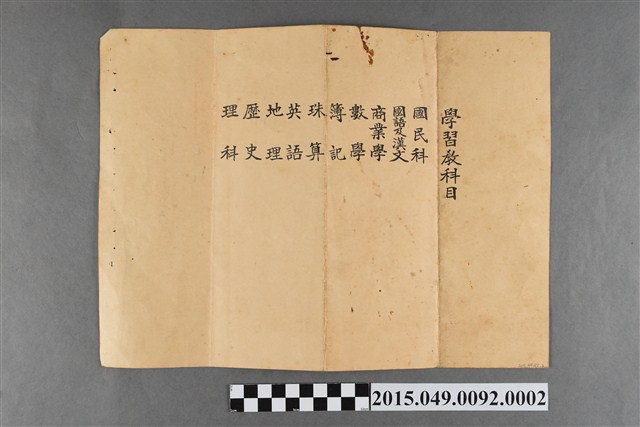 學習教科目
國民科
國語及漢文
商業學
數學
簿記
珠算
英語
地理
歷史
理科
2015.049.0092.0002